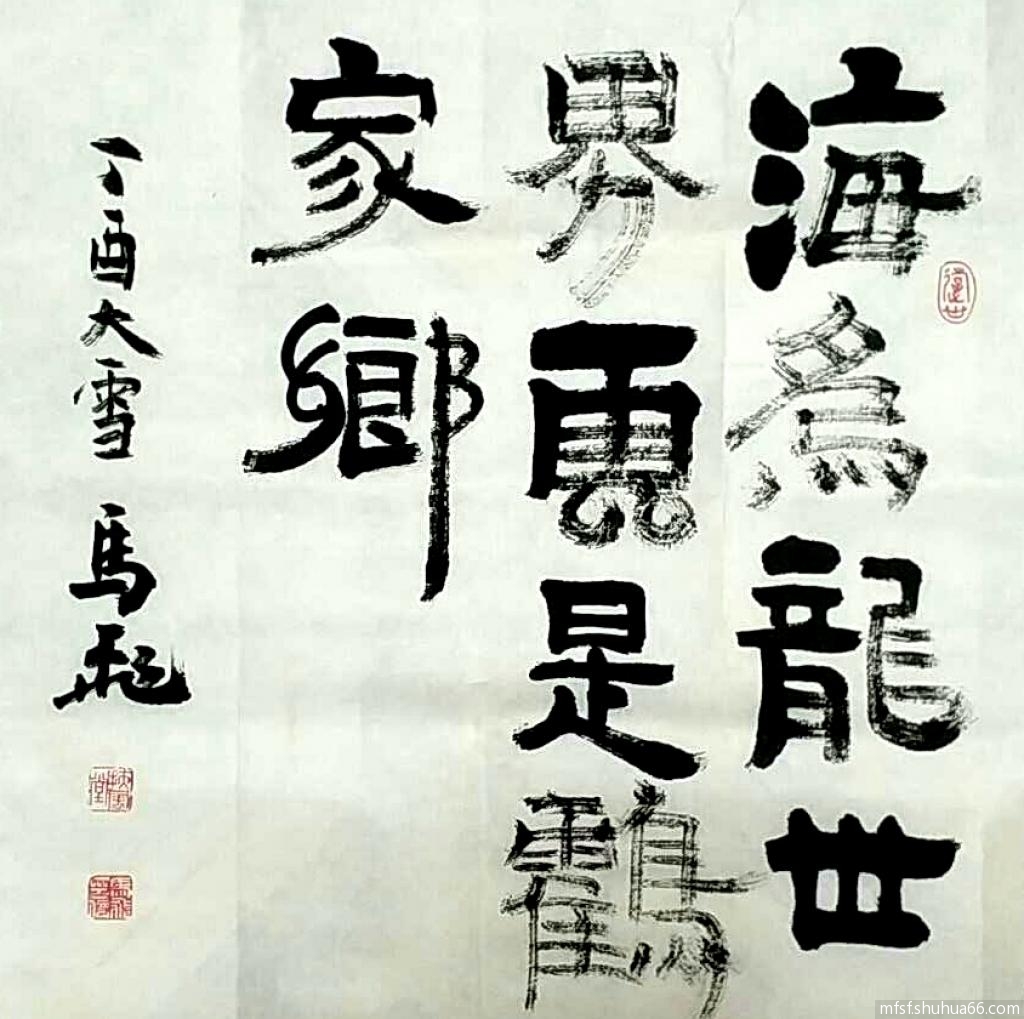 海為龍世
界雲是鸖
家鄉
丁酉大雪 馬飛
mfsfshuhua66.com